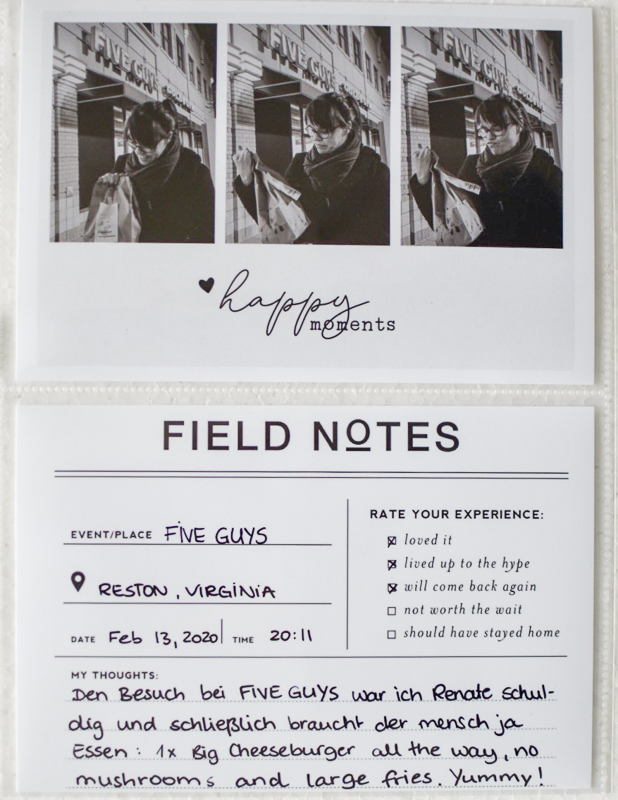 FIVE GUYS
FIVE GUYS
FIVE GUYS
happy
moments
FIELD NOTES
EVENT/PLACE FIVE GUYS
RESTON, VIRGINIA
DATE Feb 13, 2020 TIME 20:11
RATE YOUR EXPERIENCE:
loved it
lived up to the hype
will come back again
not worth the wait
should have stayed home
MY THOUGHTS:
Den Besuch bei FIVE GUYS war ich Renate schul-
dig und schließlich braucht der mensch ja
Essen: 1x Big Cheeseburger all the way, no
mushrooms and large fries. Yummy!